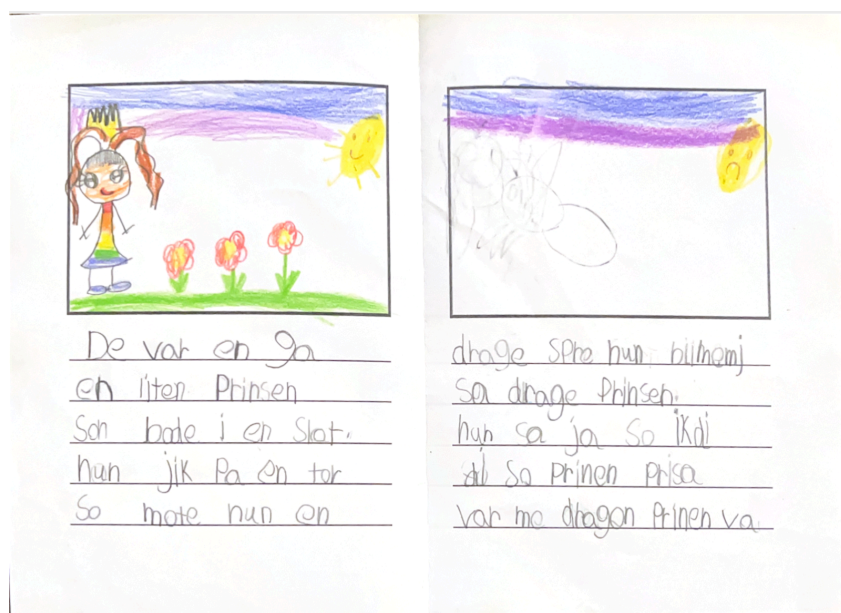 De var en ga
en liten Prinsen
Son bode i en Slot.
hun jik Pa en tor
So mote hun en
drage spre hun bilmemj
Sa drage Prinsen.
hun sa ja So ikdi
til So prinen prisa
var me dragen Prinen va